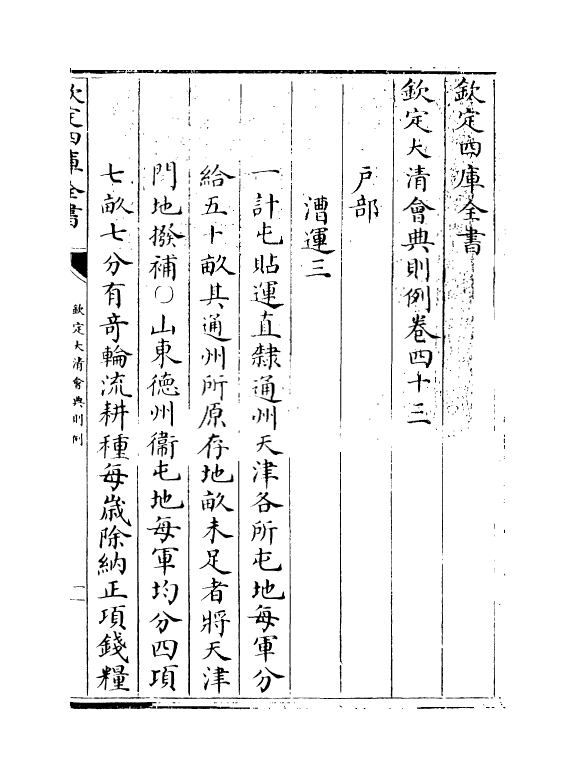 欽定四庫全書
欽定大清會典則例卷四十三
戶部
漕運三
一計屯貼運直隸通州天津各所屯地每軍分
給五十畝其通州所原存地畝未足者將天津
閒地撥補〇山東德州衞屯地每軍均分四項
七畝七分有竒輪流耕種每嵗除納正項錢糧
欽定四庫全書
欽定大清會典則例
一